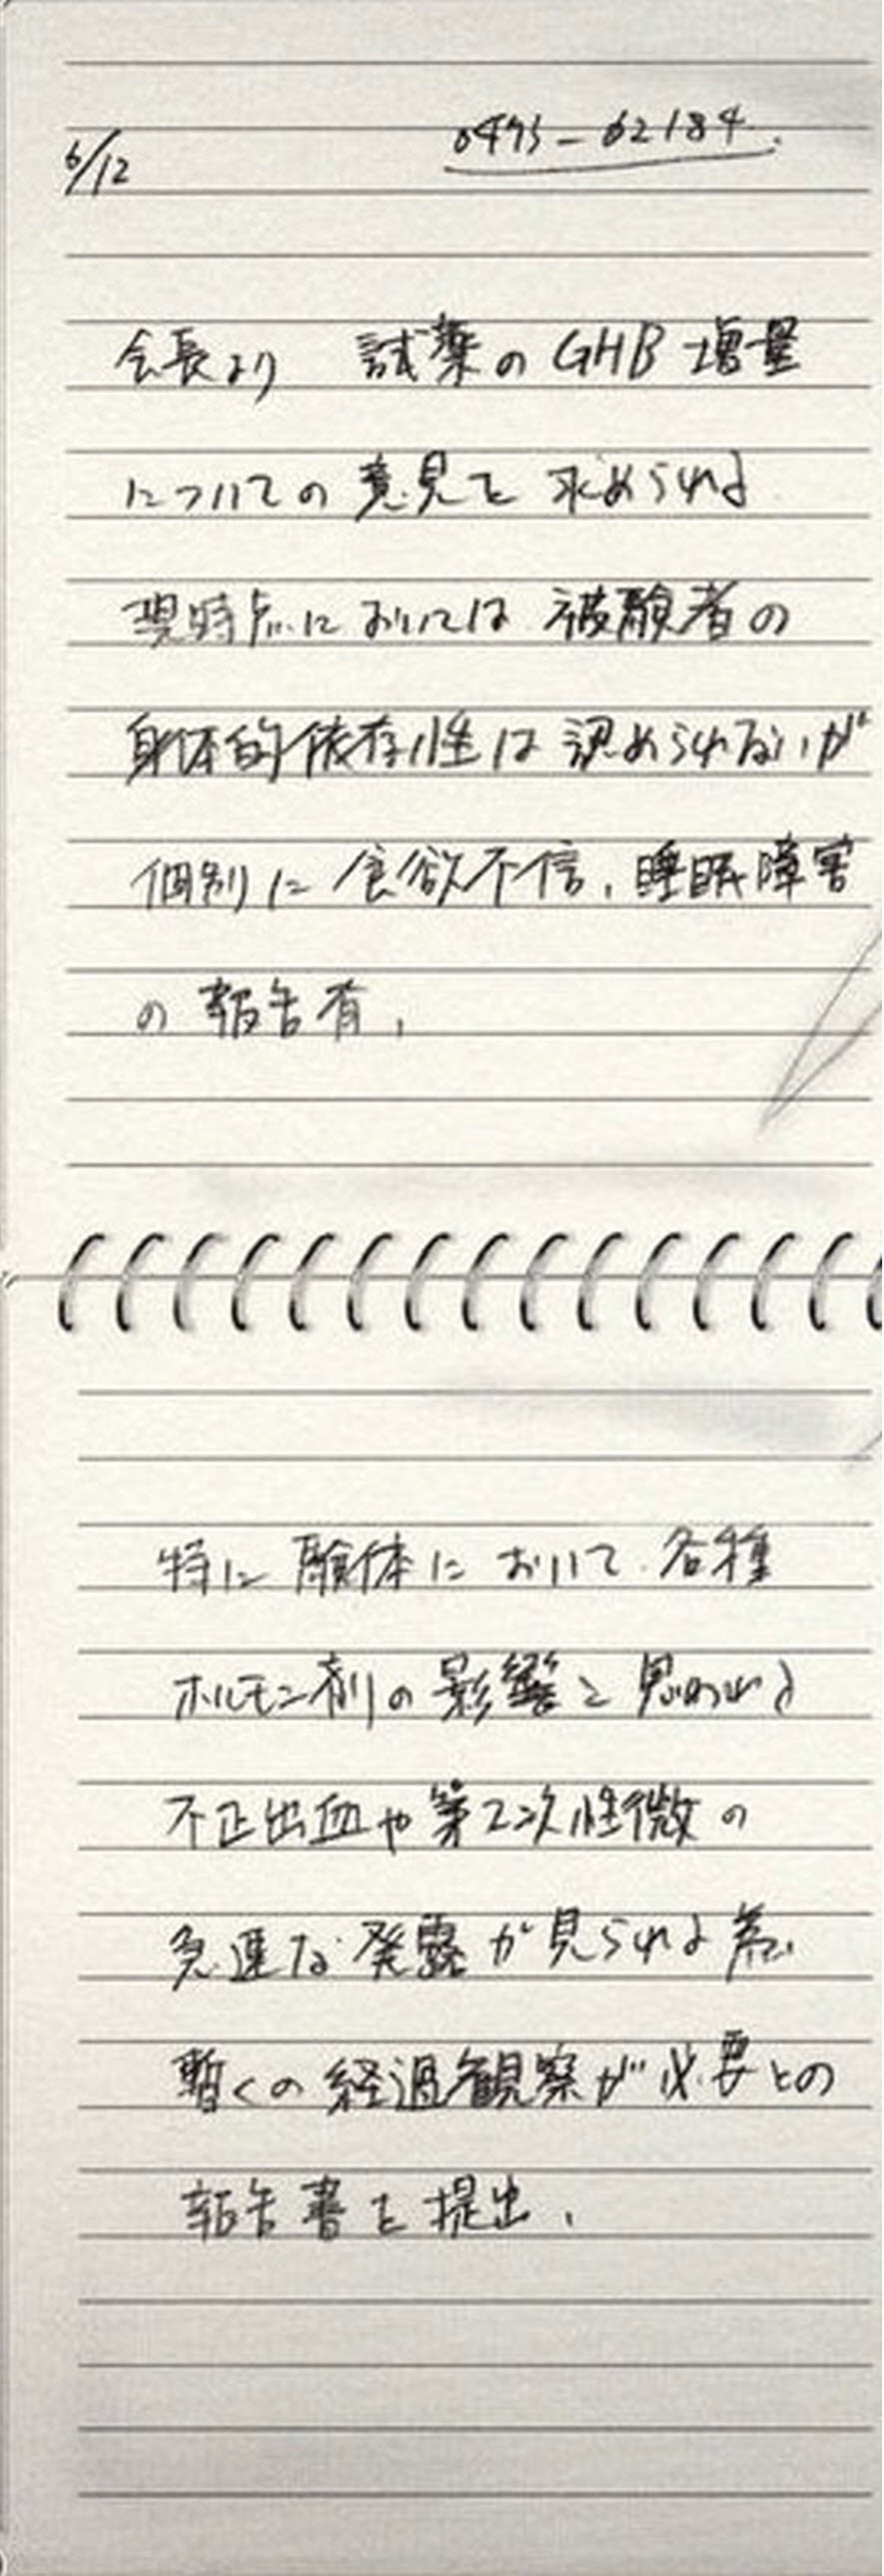 6/12
0475-62184.
会長より 試薬のGHB増量
についての意見を求められる
現時点においては 被験者の
身体的依存性は認められないが
個別に食欲不信、睡眠障害
の報告有、
特に験体において、各種
ホルモン剤の影響と思われる
不正出血や第2次性微の
急速な発露が見られる為、
暫くの経過観察が必要との
報告書を提出、